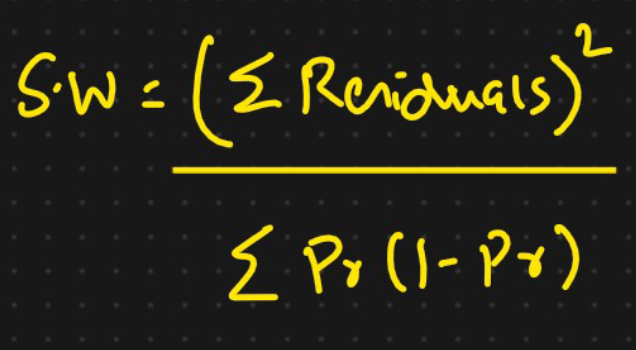 S.W = (Σ Residuals)²
Σ Pr (1 - Pr)